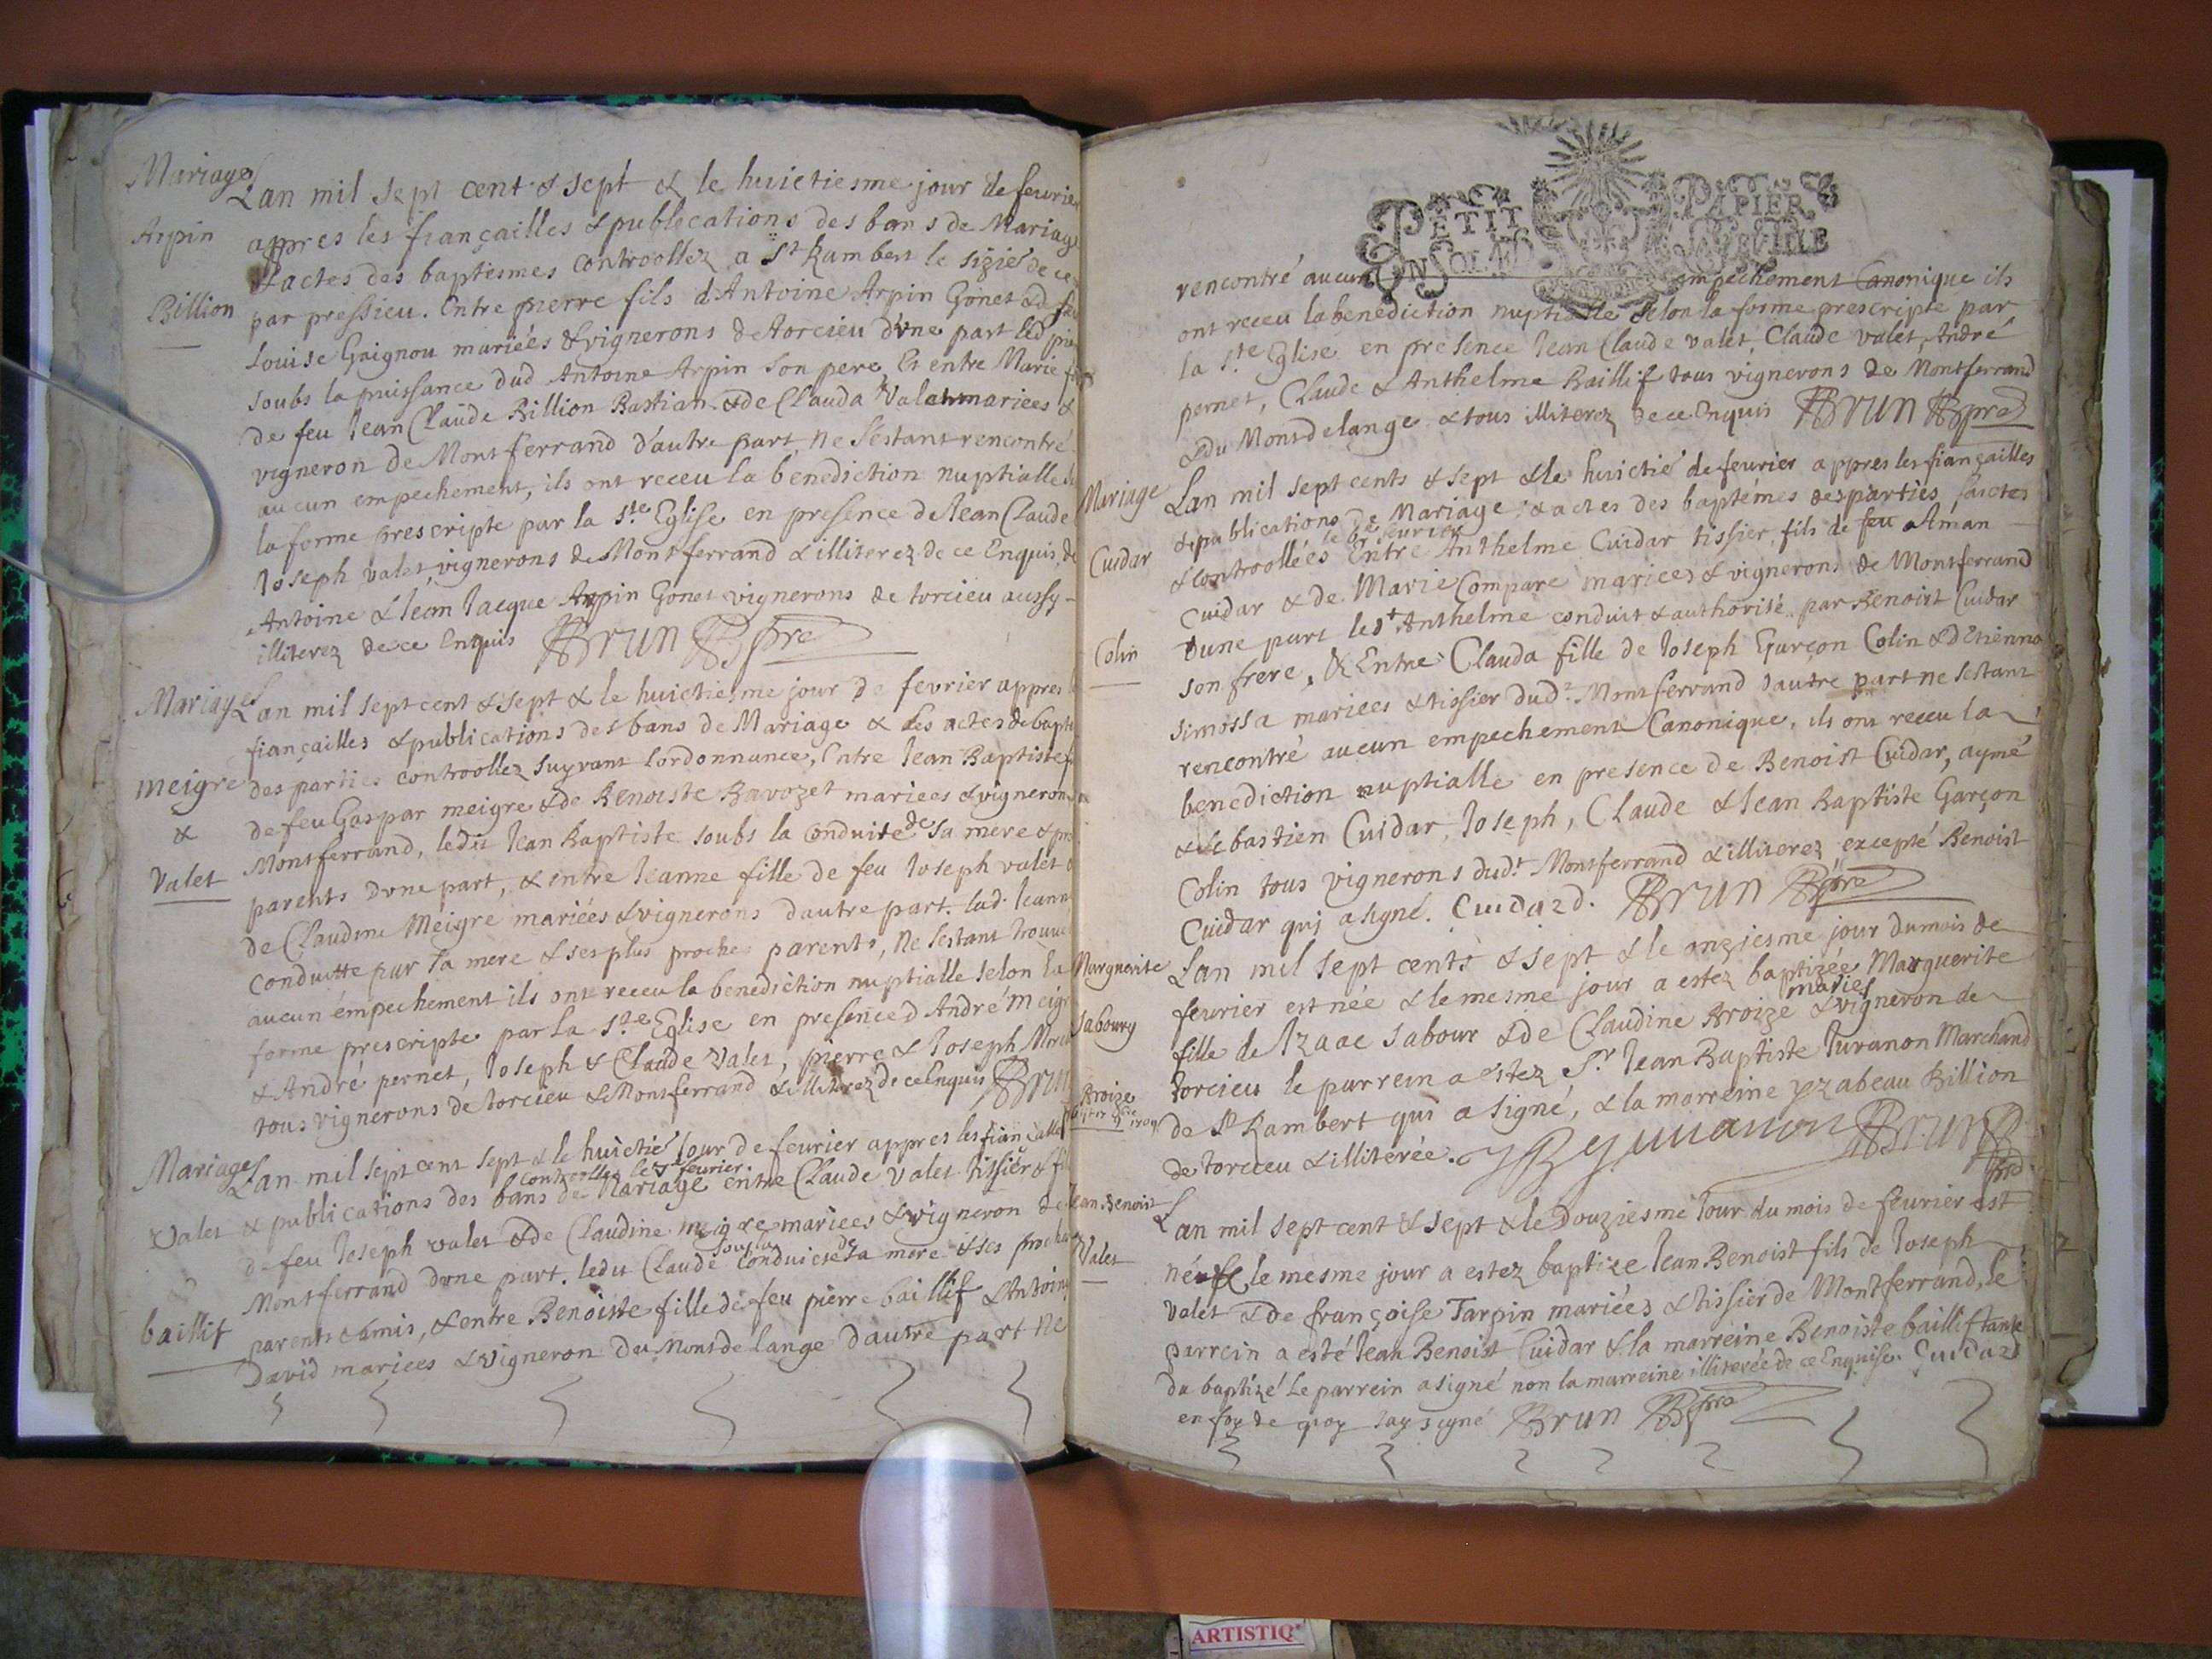 Mariage
Lan mil sept cent & sept & le huictiesme jour de feurier
Arpin
appres les fiançailles & publications des bans de Mariage
& actes des baptesmes controollez a St Rambert le sizié de ce
Billion
par pressieu. Entre pierre fils d'Antoine Arpin Gonet & de feu
Louise Gaignou mariées & vignerons de torcieu d'vne part led
soubs la puissance dud Antoine Arpin son pere, Et entre Marie
de feu Jean Claude Billion Bastian & de Clauda Valet mariees &
vigneron de Montferrand d'autre part, ne s'estant rencontré
aucun empechement, ils ont receu la benediction nuptialle
la forme prescripte par la Ste Eglise en presence de Jean Claude
Joseph valet vignerons de Montferrand & illiterez de ce Enquis, de
Antoine & Jean Jacque Arpin Gonet vignerons de torcieu aussy
illiterez de ce Enquis Brun
Mariage
Lan mil sept cent & sept & le huictiesme jour de fevrier appres
fiançailles & publications des bans de Mariage & les actes de bapte
meigre
des parties controollez suyvant lordonnance, Entre Jean Baptiste
&
de feu Gaspar meigre & de Benoiste Ravozet mariees & vigneron
Montferrand, ledit Jean Baptiste soubs la conduite de sa mere &
Valet
parents dvne part, & entre Jeanne fille de feu Joseph valet
de Claudine Meigre mariées & vignerons dautre part. lad. Jeanne
conduitte par sa mere & ses plus proches parents, ne sestant trouvé
aucun émpechement ils ont receu la benediction nuptialle selon la
forme prescripte par la Ste Eglise en presence d André Meigre
& André pernet, Joseph & Claude Valet, pierre & Joseph
tous vignerons de torcieu & Montferrand & illiterez de ce Enquis Brun
Mariage
Lan mil sept cent sept & le huictié Jour de feurier appres les fiançailles
controollez le fevrier
Valet & publications des bans de Mariage entre Claude Valet tissier & fils
de feu Joseph valet & de Claudine meigre mariees & vigneron de
Montferrand dvne part. ledit Claude soubs la conduicte de sa mere & ses proches
baillif
parents & amis, & entre Benoiste fille de feu pierre baillif & Antoine
David mariees & vigneron du Mont de lange dautre part ne
PETIT PAPIER
VN SOL
rencontré aucun empechement Canonique ils
ont receu la benediction nuptialle selon la forme prescripte par
la Ste Eglise en presence Jean Claude valet, Claude valet, André
pernet, Claude & Anthelme Baillif tous vignerons de Montferrand
& du Mont de lange & tous illiterez de ce Enquis Brun
Mariage
Lan mil sept cents & sept & le huictié de feurier appres les fiançailles
& publications de Mariage & actes des baptémes des parties faictes
le 6e feurier
Cuidar
& controollées Entre Anthelme Cuidar tissier, fils de feu Aman
Cuidar & de Marie Compare mariees & vignerons de Montferrand
dune part ledt Anthelme conduit & authorisé par Benoist Cuidar
Colin
son frere, & Entre Clauda fille de Joseph Garçon Colin & d Etienna
simossa mariees & tissier dudt Montferrand dautre part ne sestant
rencontré aucun empechement Canonique, ils ont receu la
benediction nuptialle en presence de Benoist Cuidar, aymé
& sebastien Cuidar, Joseph, Claude & Jean Baptiste Garçon
Colin tous vignerons dudt Montferrand & illiterez excepté Benoist
Cuidar qui a signé. Cuidard. Brun
Marguerite
Lan mil sept cents & sept & le onziesme jour du mois de
feurier est née & le mesme jour a estez baptizée Marguerite
mariés
Saboury
fille de Izaac Sabour & de Claudine Broize & vigneron de
torcieu le parrein a estez Sr Jean Baptiste Juvanon Marchand
Broize
de St Rambert qui a signé, & la marreine yzabeau Billion
de torcieu & illiterée. Juvanon Brun
Jean Benoist
Lan mil sept cent & sept & le Douziesme Jour du mois de feurier est
Valet
né & le mesme jour a estez baptize Jean Benoist fils de Joseph
valet & de françoise Tarpin mariées & tissier de Montferrand, le
parrein a esté Jean Benoist Cuidar & la marreine Benoiste baillif tante
du baptizé Le parrein a signé non la marreine illiterée de ce Enquise. Cuidard
en foy de quoy Jay signé Brun
ARTISTIQ